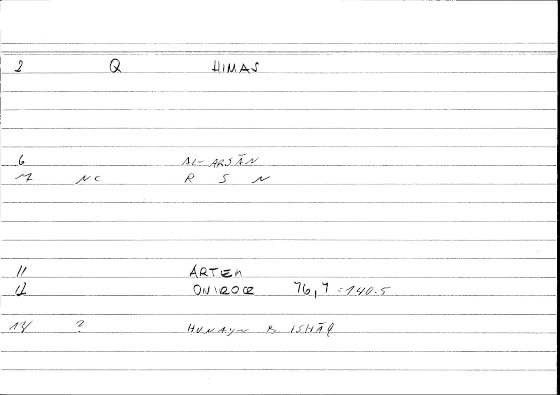 2 Q HIMAS
6 AL-ARSĀN
7 NC R S N
11 ARTEM
12 ONIROCR 76,7 = 140.5
14 ? HUNAYN B. ISHĀQ